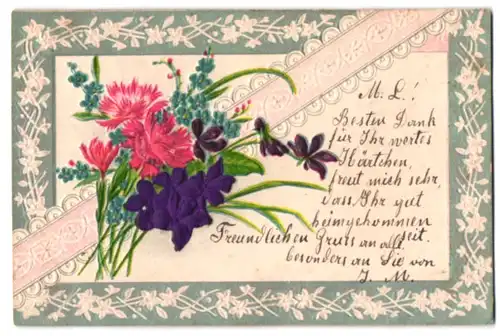 M. L.!
Besten Dank
für Ihr wertes
Kärtchen,
freut mich sehr,
dass Ihr gut
heimgekommen
seit.
Freundlichen Gruss an all
besonders an Sie von
J. M.